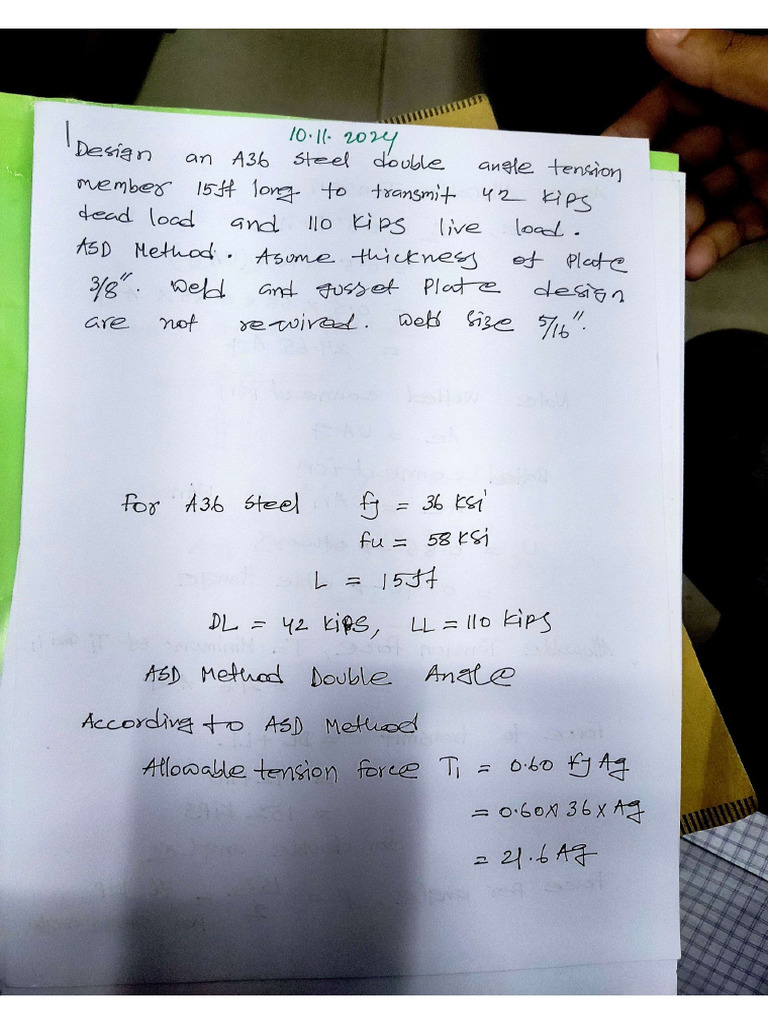 10.11.2024
Design an A36 steel double angle tension
member 15ft long to transmit 42 kips
dead load and 110 kips live load.
ASD Method. Asume thickness of plate
3/8". Weld and gusset plate design
are not required. Weld size 5/16".
for A36 steel fy = 36 ksi
fu = 58 ksi
L = 15ft
DL = 42 kips, LL = 110 kips
ASD Method Double Angle
According to ASD Method
Allowable tension force T1 = 0.60 fy Ag
= 0.60 x 36 x Ag
= 21.6 Ag